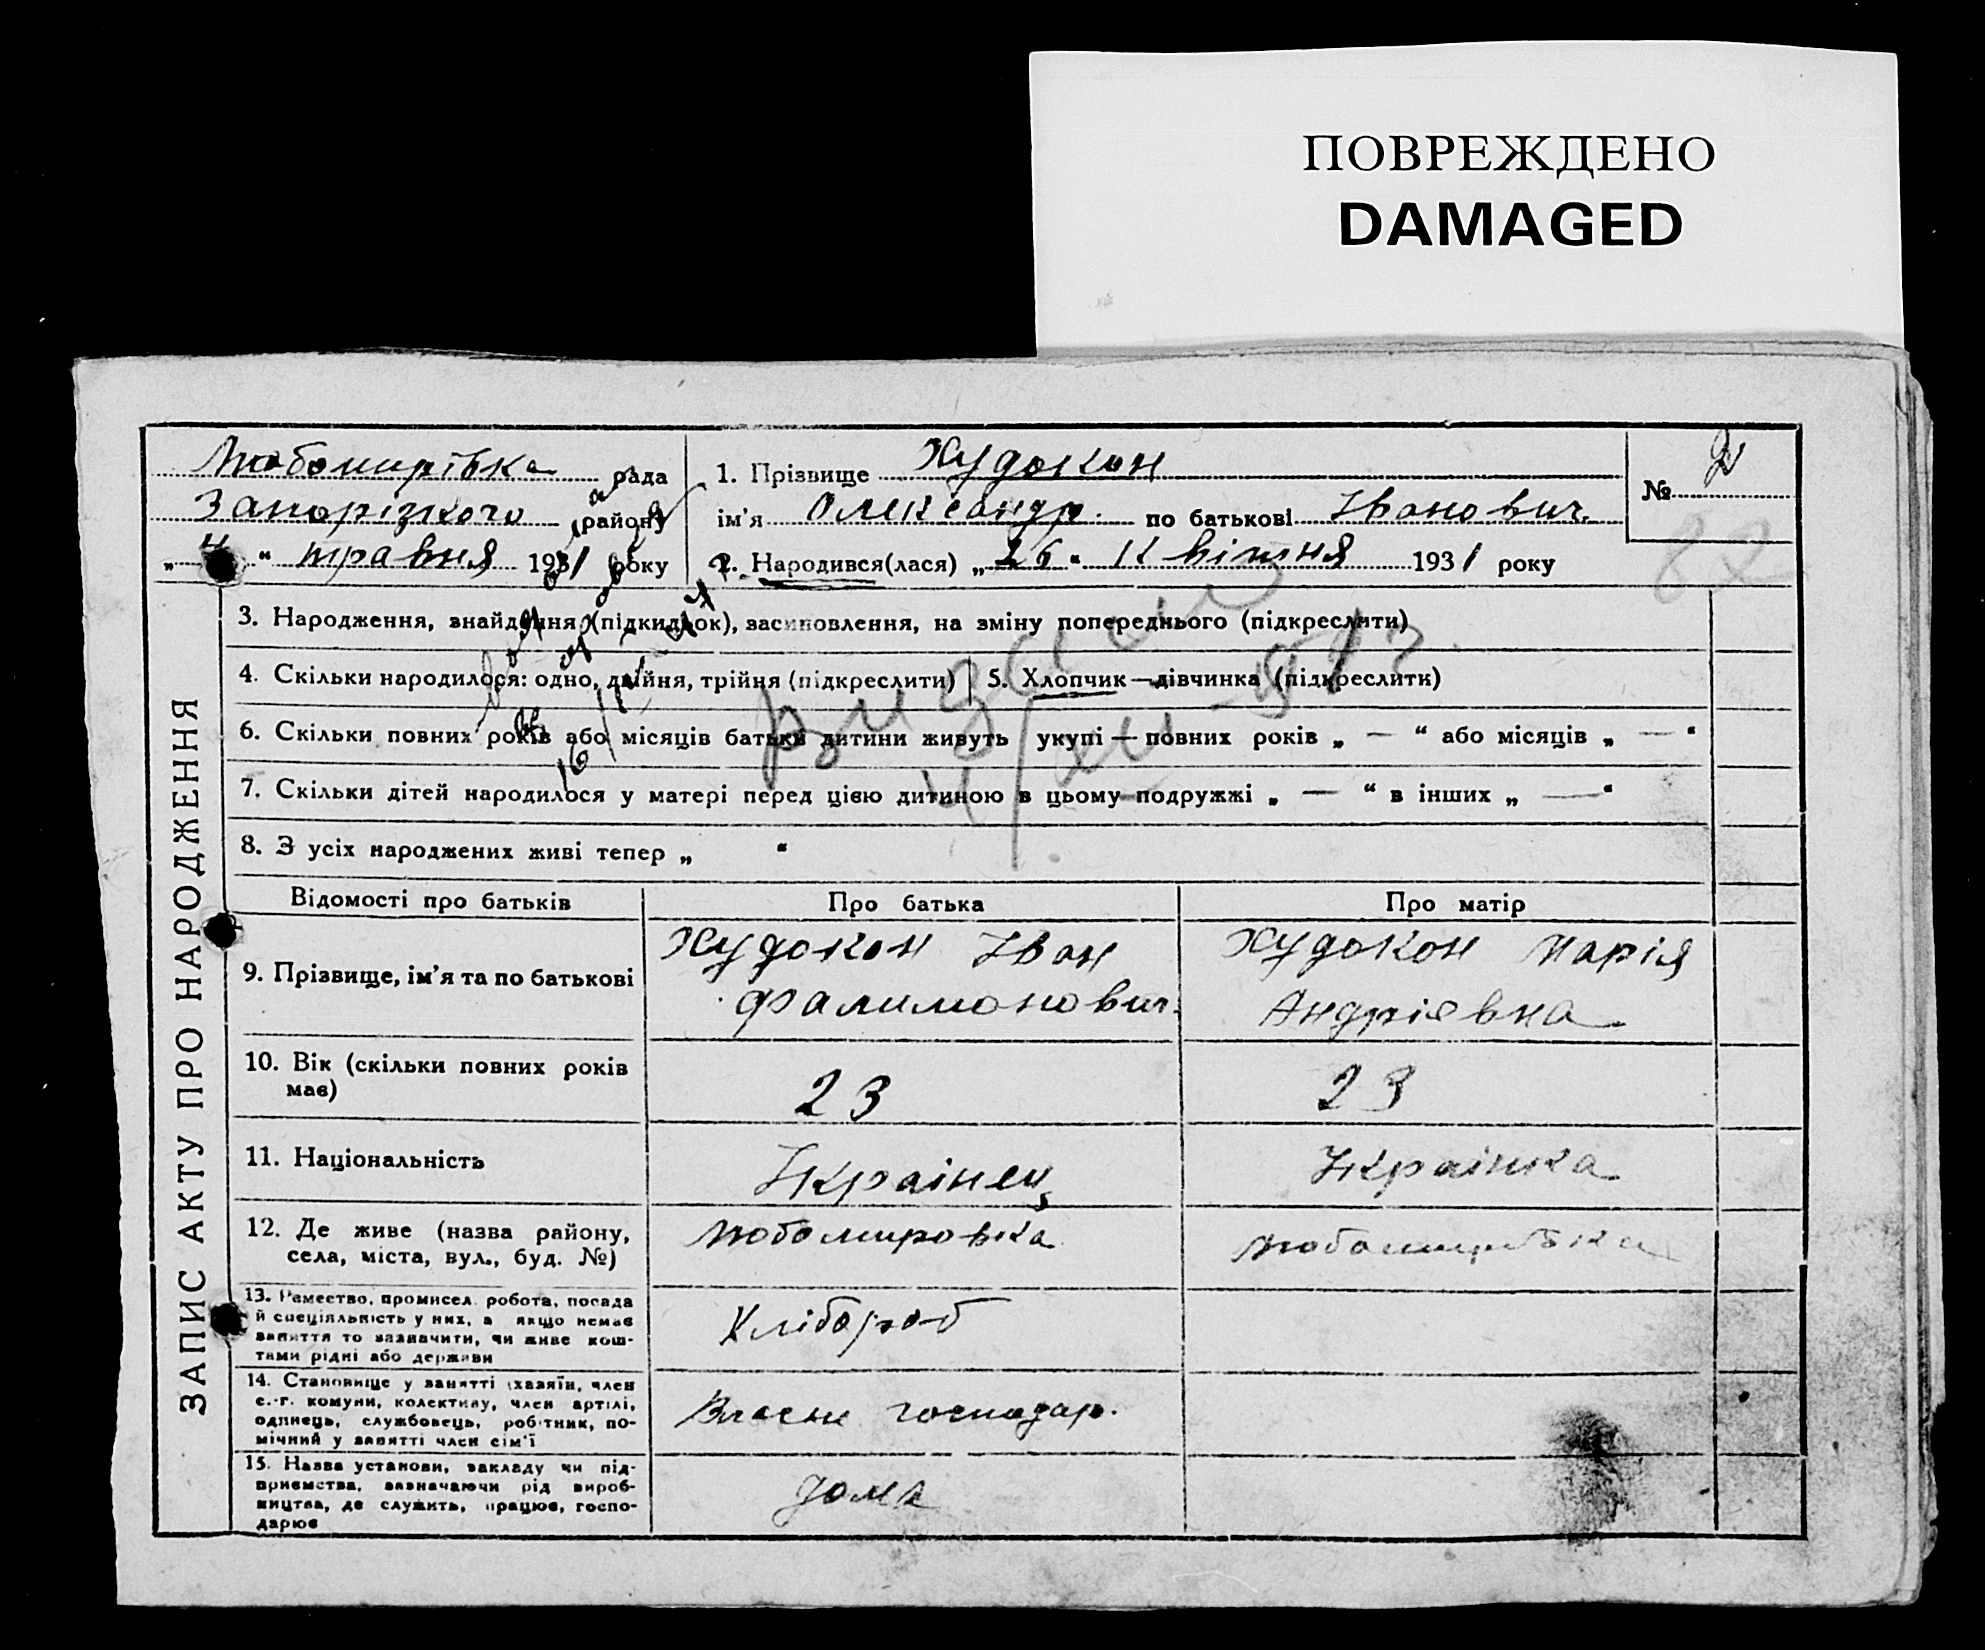 ПОВРЕЖДЕНО
DAMAGED
Любомирівка рада
Запорізкого району
„ 4 “ травня 1931 року
1. Прізвище Худокон
ім'я Олександр по батькові Іванович
2. Народився(лася) „ 26 “ Квітня 1931 року
№ 2
82
3. Народження, знайдення (підкидьок), засиновлення, на зміну попереднього (підкреслити)
4. Скільки народилося: одно, двійня, трійня (підкреслити) 5. Хлопчик—дівчинка (підкреслити)
6. Скільки повних років або місяців батьки дитини живуть укупі — повних років „ — “ або місяців „ — “
7. Скільки дітей народилося у матері перед цією дитиною в цьому подружжі „ — “ в інших „ — “
8. З усіх народжених живі тепер „ “
ЗАПИС АКТУ ПРО НАРОДЖЕННЯ
Відомості про батьків Про батька Про матір
9. Прізвище, ім'я та по батькові
Худокон Іван
Фалимонович
Худокон Марія
Андрієвна
10. Вік (скільки повних років
має)
23
23
11. Національність
Украінец
Украінка
12. Де живе (назва району,
села, міста, вул., буд. №)
Любомировка
Любомирівка
13. Рамество, промисел робота, посада
й спеціяльність у них, а якщо немає
заняття то зазначити, чи живе кош-
тами рідні або держави
Хлібороб
14. Становище у занятті (хазяїн, член
с.-г. комуни, колективу, член артілі,
одинець, службовець, робітник, по-
мічний у занятті член сім'ї
Власне господар.
15. Назва установи, закладу чи під-
приємства, зазначаючи рід вироб-
ництва, де служить, працює, госпо-
дарює
дома